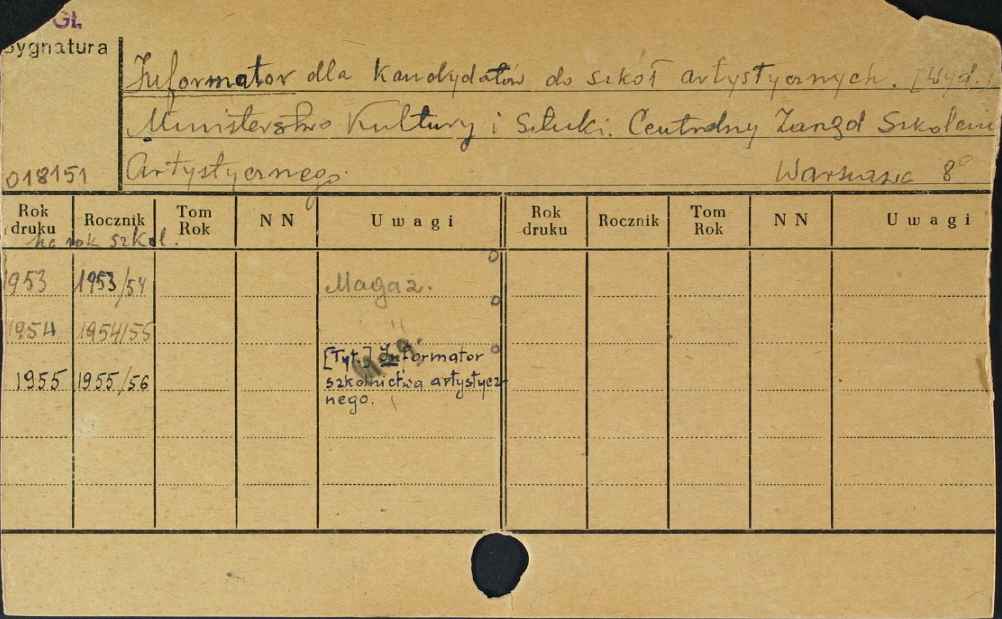 GŁ
Sygnatura
Informator dla kandydatów do szkół artystycznych. [Wyd.]
Ministerstwo Kultury i Sztuki. Centralny Zarząd Szkoleni
Artystycznego.
Warszawa 8°
018151
Rok druku Rocznik Tom Rok NN Uwagi Rok druku Rocznik Tom Rok NN Uwagi
na rok szkol.
1953 1953/54 Magaz.
1954 1954/55 "
1955 1955/56 [Tyt.] Informator
szkolnictwa artystycz-
nego.